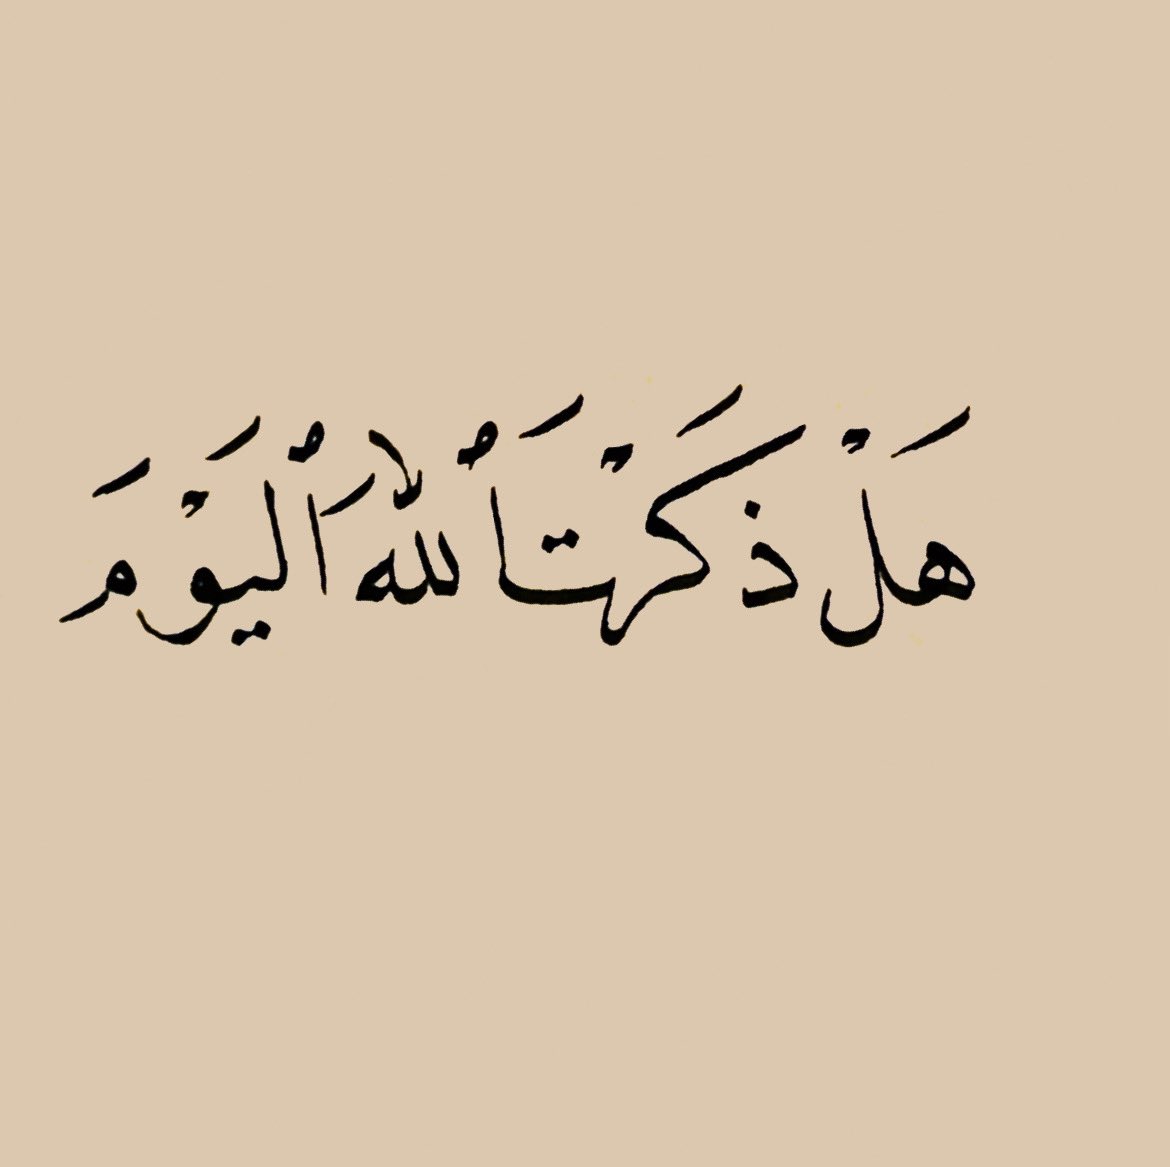 هَلْ ذَكَرْتَ ٱللَّهَ ٱلْيَوْمَ